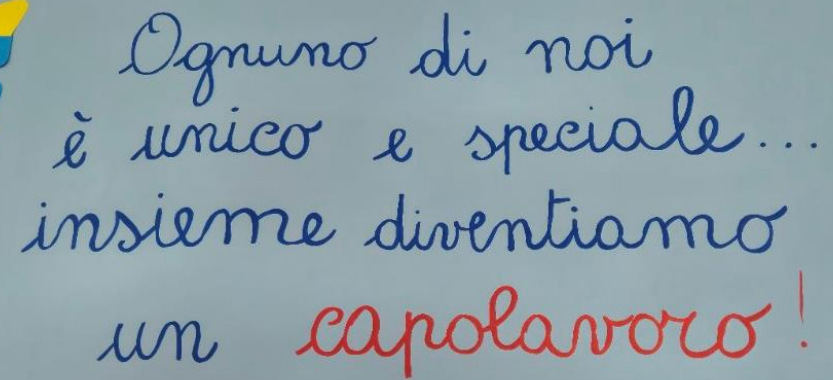 Ognuno di noi
è unico e speciale...
insieme diventiamo
un capolavoro!